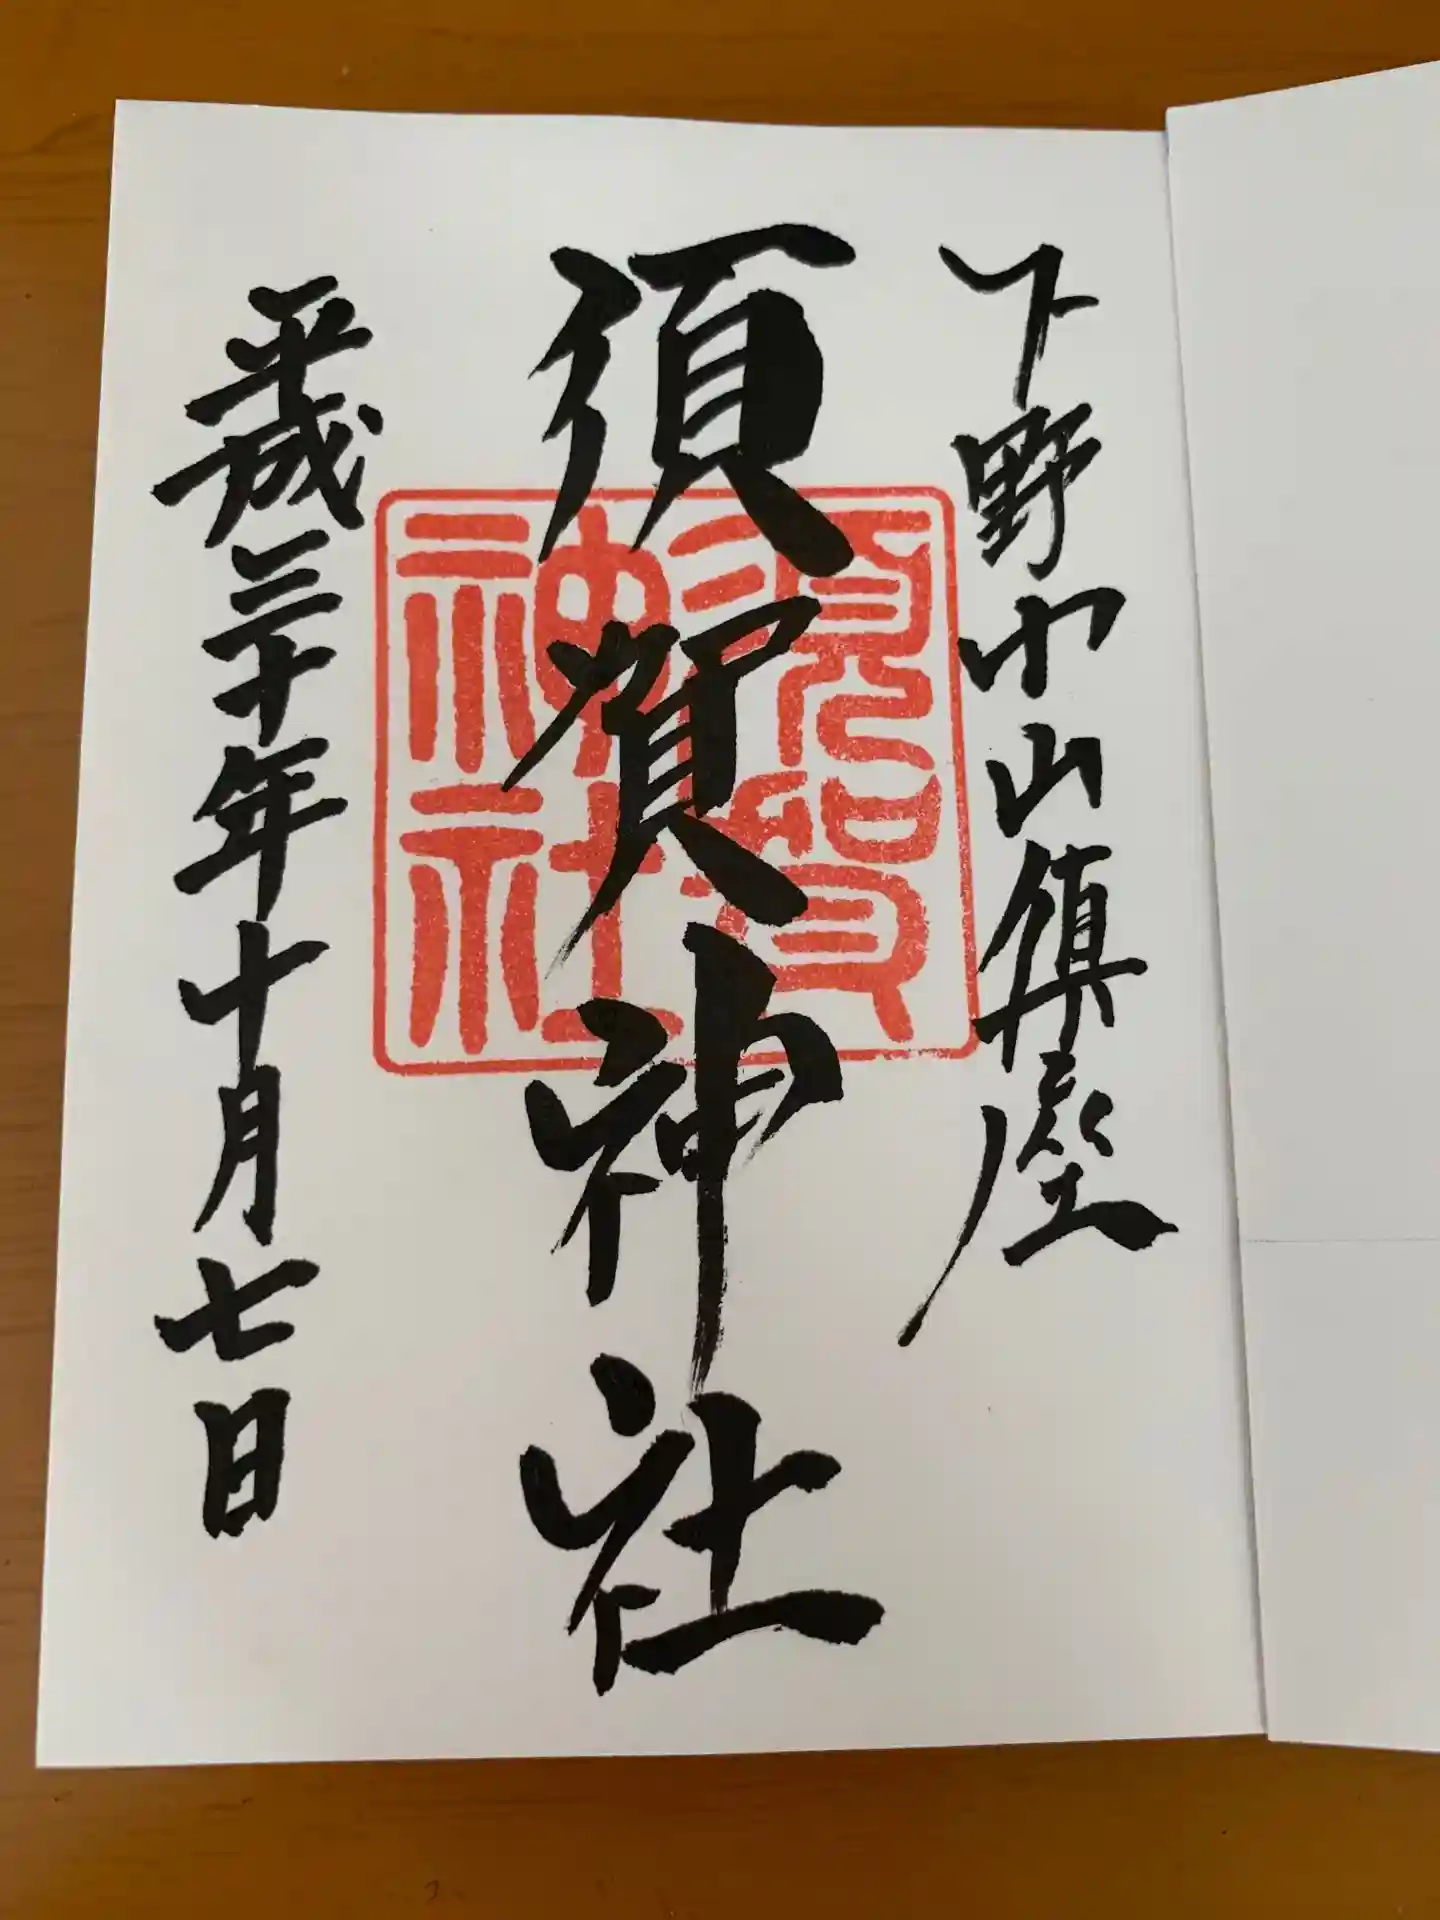 下野小山鎮座
須賀神社
須賀神社
平成三十年十月七日